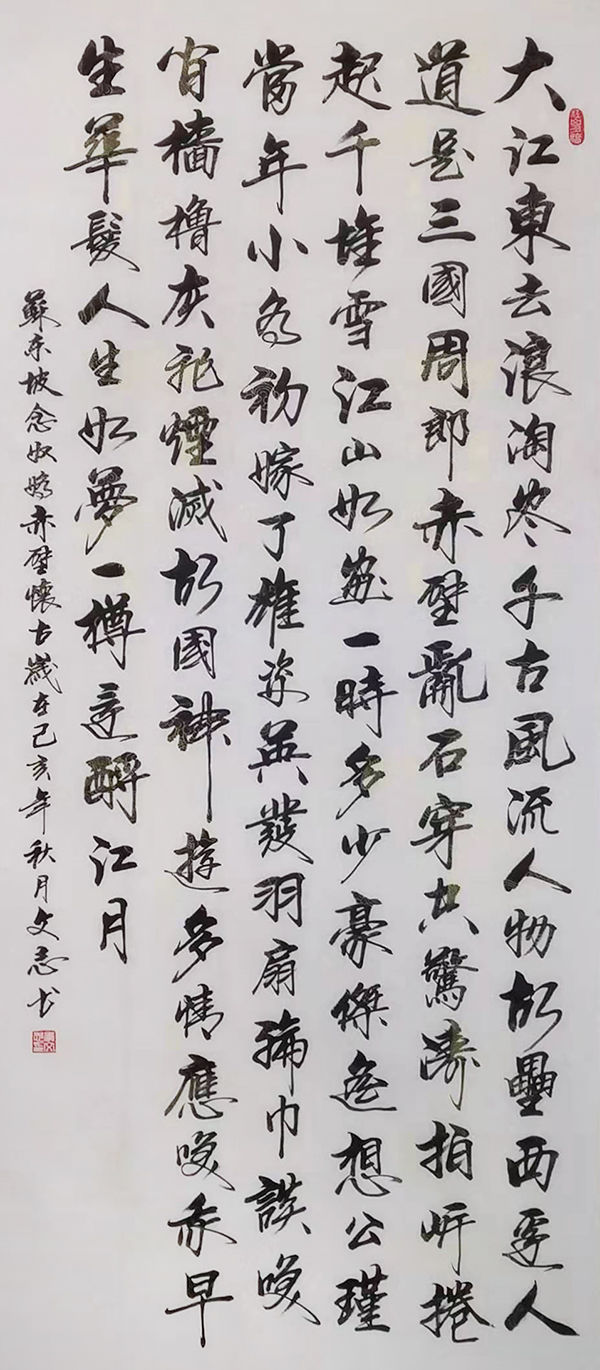 大江東去浪淘盡千古風流人物故壘西邊人
道是三國周郎赤壁亂石穿空驚濤拍岸捲
起千堆雪江山如畫一時多少豪傑遙想公瑾
當年小喬初嫁了雄姿英發羽扇綸巾談笑
間檣櫓灰飛煙滅故國神遊多情應笑我早
生華髮人生如夢一樽還酹江月
蘇東坡念奴嬌赤壁懷古歲在己亥年秋月文志书